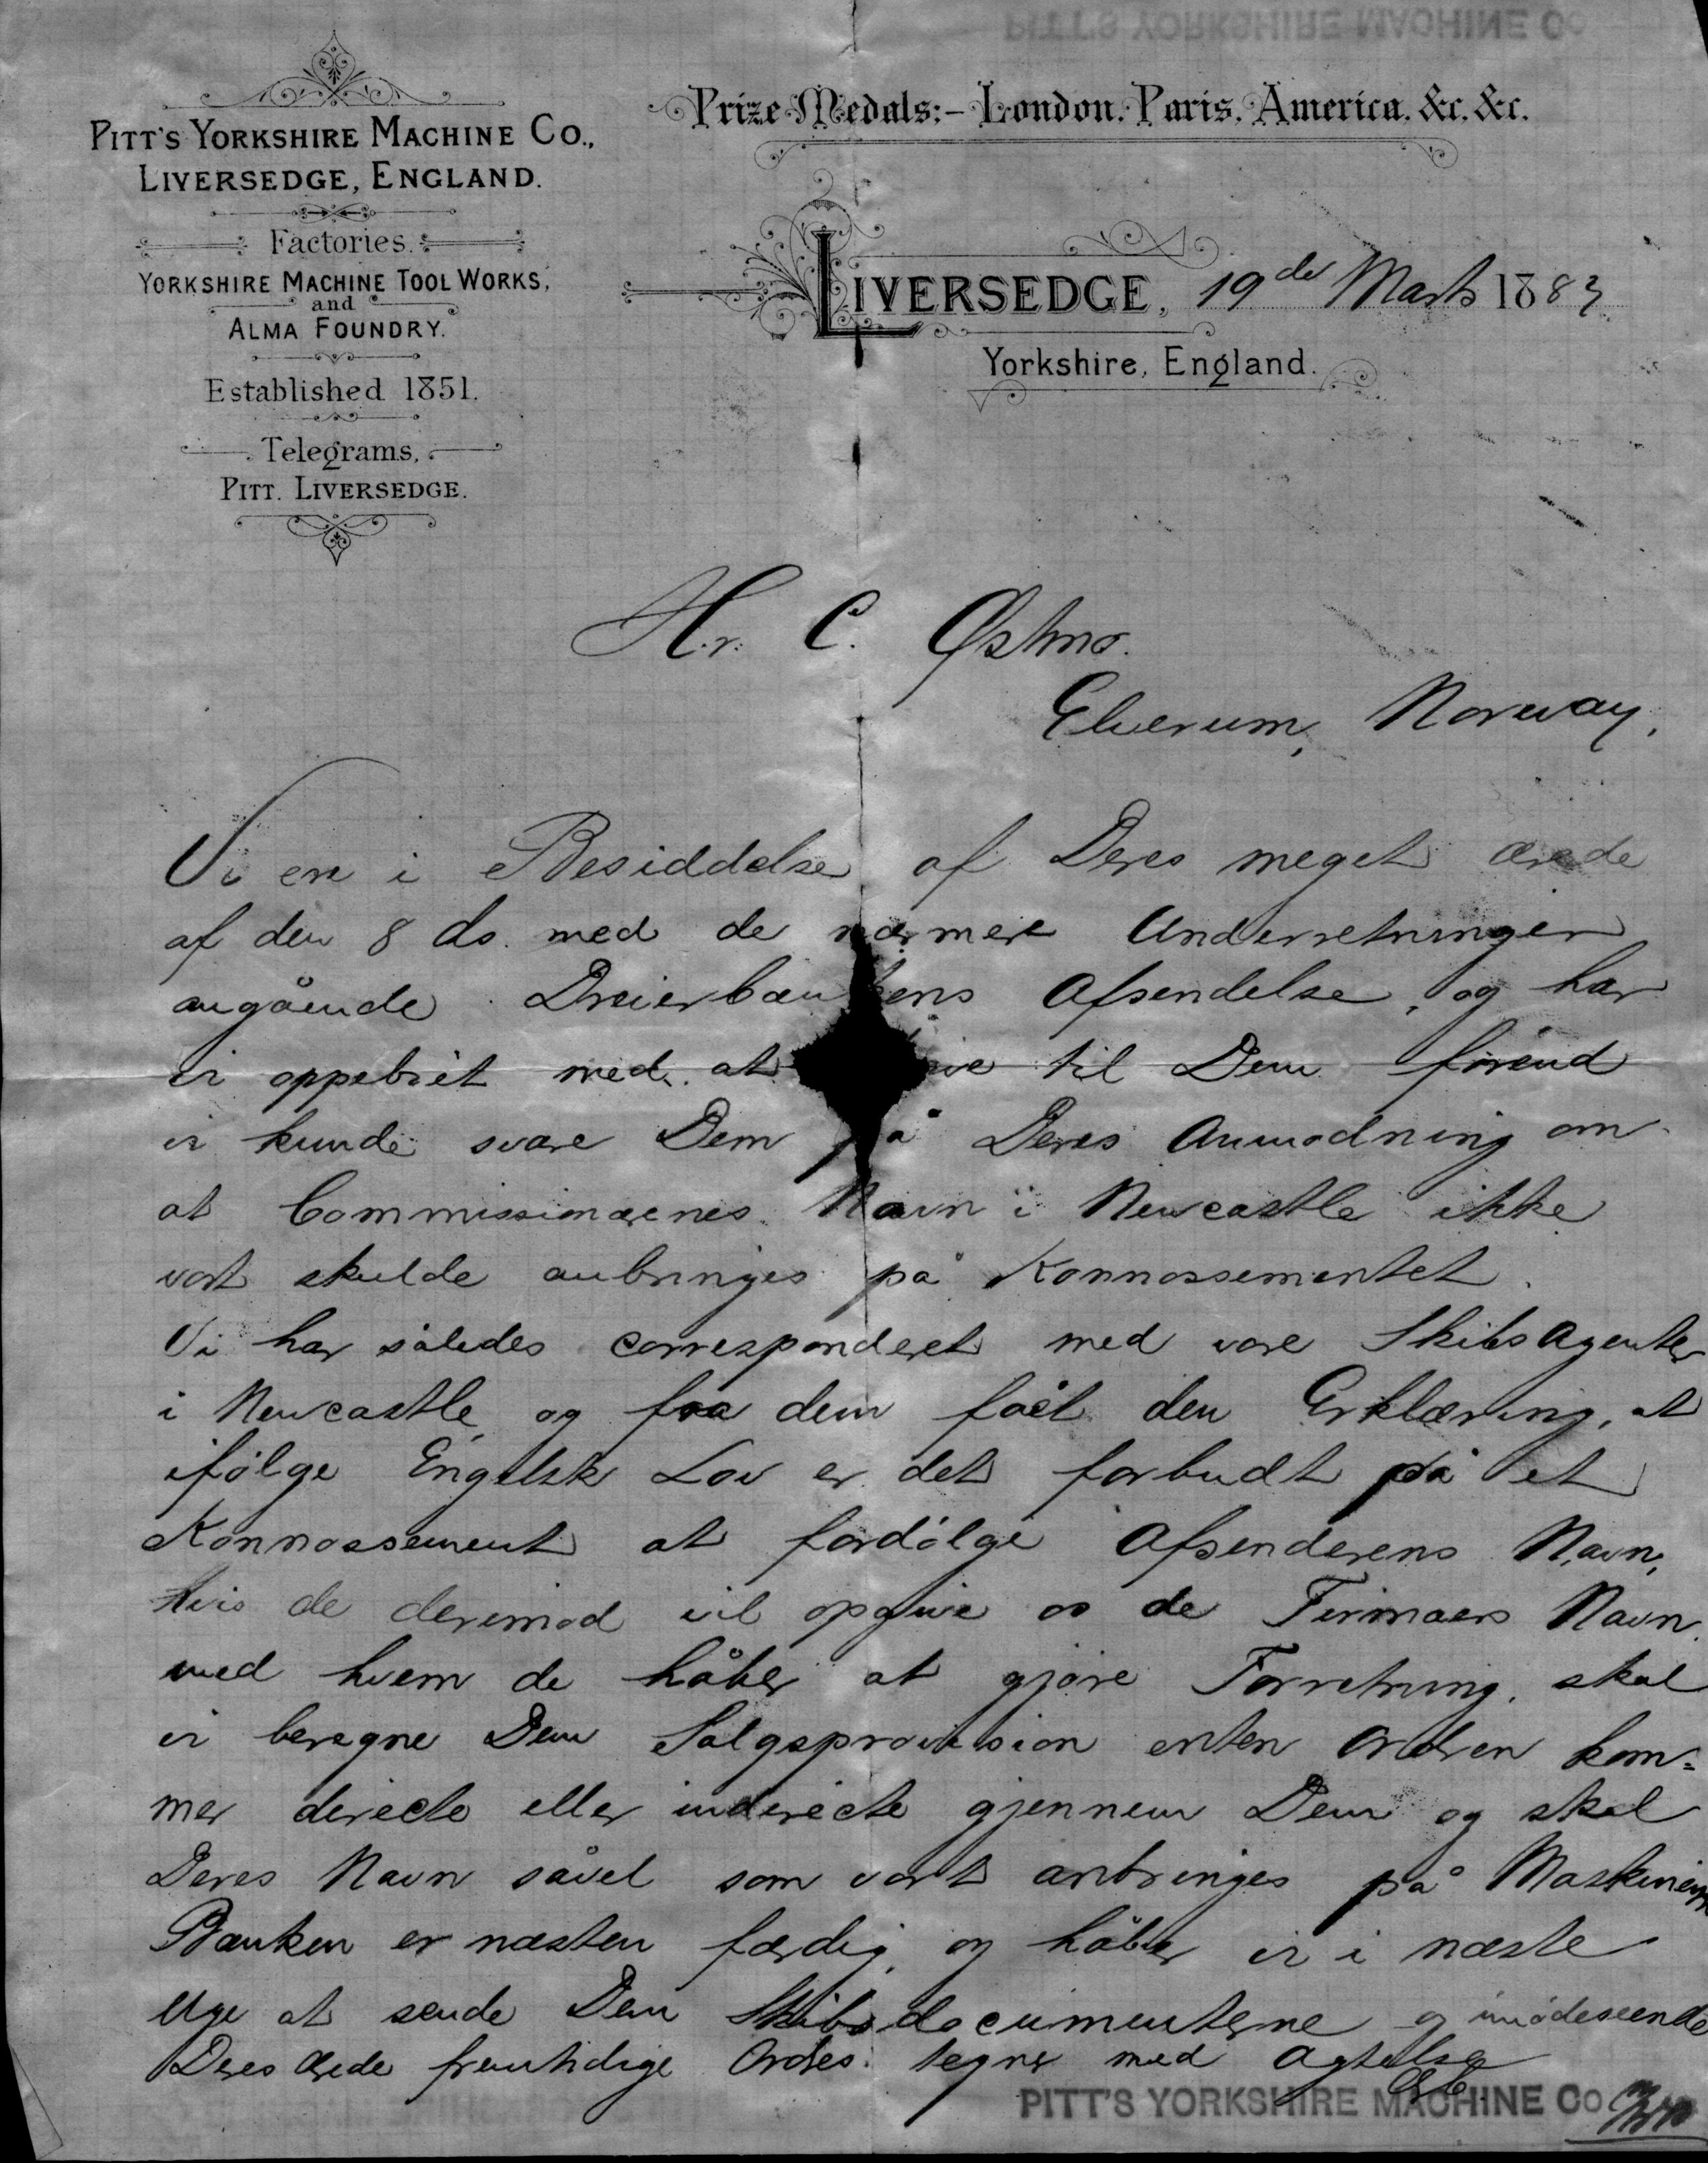 PITT'S YORKSHIRE MACHINE Co
PITT'S YORKSHIRE MACHINE CO.,
LIVERSEDGE, ENGLAND.
Factories.
YORKSHIRE MACHINE TOOL WORKS,
and
ALMA FOUNDRY.
Established 1851.
Telegrams,
PITT. LIVERSEDGE.
Prize Medals:- London. Paris. America. &c. &c.
LIVERSEDGE, 19de Marts 1883
Yorkshire, England.
Hr. C. Østmo.
Elverum, Norway.
Vi ere i Besiddelse af Deres meget ærede
af den 8 ds. med de nærmere Underretninger
angående Dreierbænkens Afsendelse, og har
vi oppebiet med at til Dem førend
vi kunde svare Dem på Deres Anmodning om
at Commissionærenes Navn i Newcastle ikke
vort skulde anbringes på Konnossementet.
Vi har således correspondéret med vore Skibsagenter
i Newcastle og fra dem fået den Erklæring, at
ifølge Engelsk Lov er det forbudt på et
Konnossement at fordølge Afsenderens Navn,
Hvis de derimod vil opgive os de Firmaers Navn
med hvem de håber at gjøre Forretning, skal
vi beregne Dem Salgsprovision enten Ordren kom=
mer directe eller indirecte gjennem Dem og skal
Deres Navn såvel som vort anbringes på Maskinen
Bænken er næsten færdig, og håber vi i næste
Uge at sende Dem Skibsdocumenterne og imødeseende
Deres ærede fremtidige Ordres tegner med Agtelse
PITT'S YORKSHIRE MACHINE Co